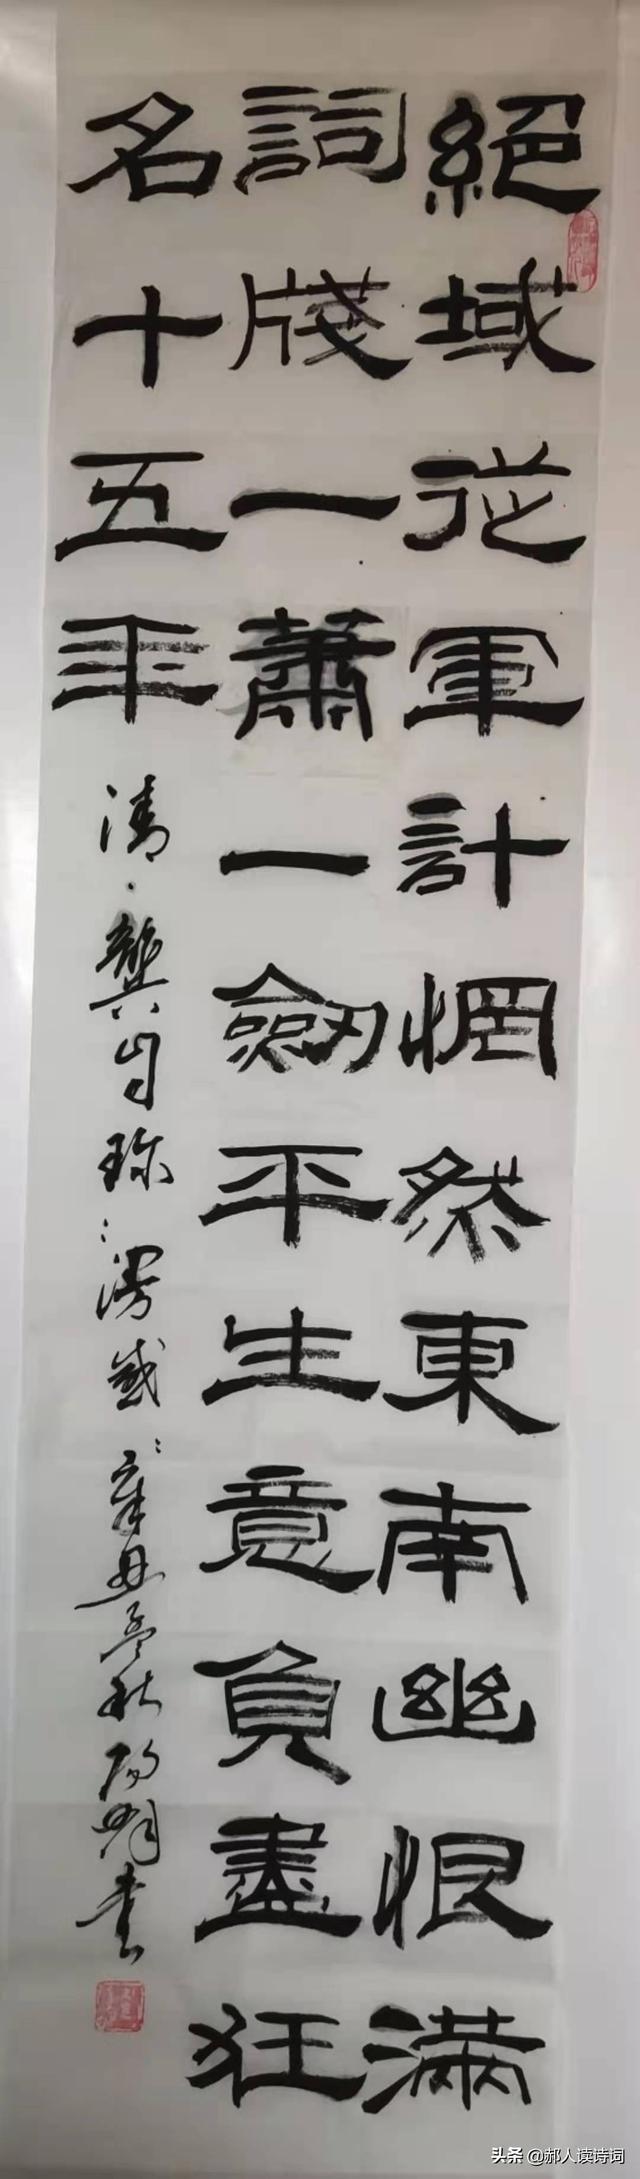 絕域從軍計惘然東南幽恨滿
詞牋一蕭一劒平生意負盡狂
名十五年
清·龔自珍:漫感:辛丑孟秋書
头条 @郝人读诗词